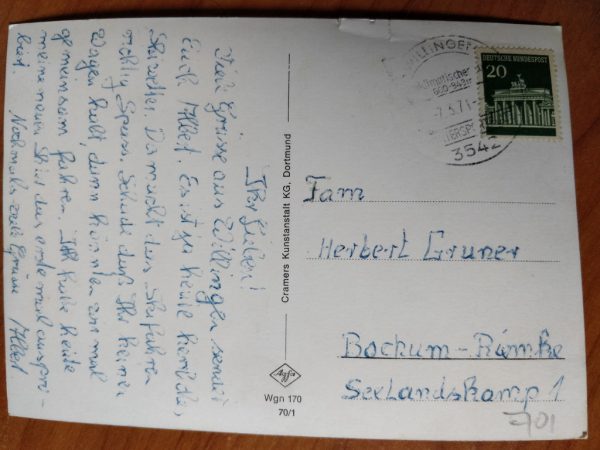 Ihr Lieben!
Viele Grüsse aus Willingen sendet
Euch Albert. Es ist ja heute herrliches
Skiwetter. Da macht das Skifahren
richtig Spass. Schade daß Ihr keinen
Wagen habt, dann könnten wir mal
gemeinsam fahren. Ich habe heute
meine neuen Ski das erste mal auspro-
biert. Nochmals viele Grüsse Albert
Cramers Kunstanstalt KG, Dortmund
Agfa
Wgn 170
70/1
WILLINGEN
Klimatischer
-7.3.71-
3542
DEUTSCHE BUNDESPOST
20
Fam
Herbert Gruner
Bochum-Riemke
Seelandskamp 1
701